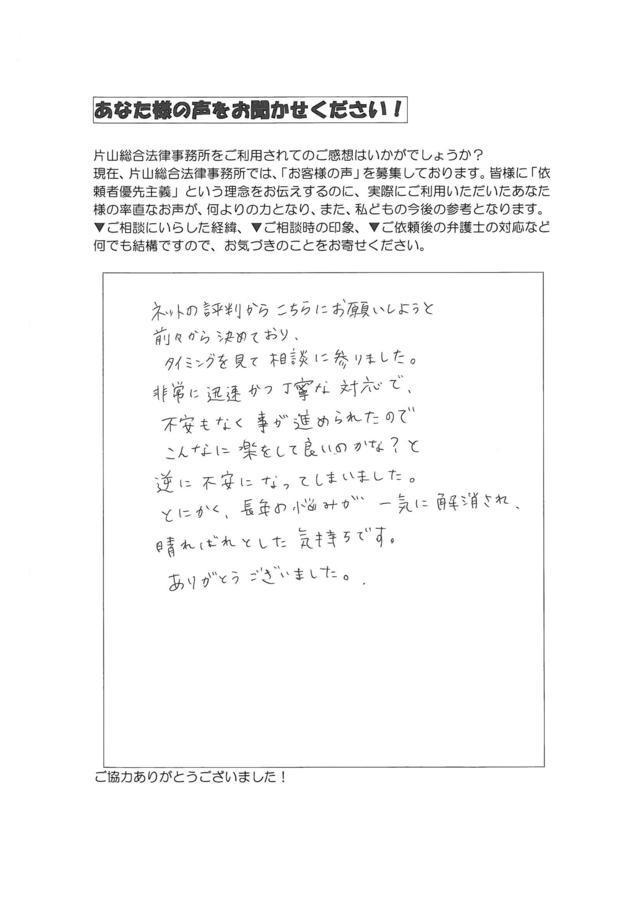 あなた様の声をお聞かせください！
片山総合法律事務所をご利用されてのご感想はいかがでしょうか？
現在、片山総合法律事務所では、「お客様の声」を募集しております。皆様に「依
頼者優先主義」という理念をお伝えするのに、実際にご利用いただいたあなた
様の率直なお声が、何よりの力となり、また、私どもの今後の参考となります。
▼ご相談にいらした経緯、▼ご相談時の印象、▼ご依頼後の弁護士の対応など
何でも結構ですので、お気づきのことをお寄せください。
ネットの評判からこちらにお願いしようと
前々から決めており、
タイミングを見て相談に参りました。
非常に迅速かつ丁寧な対応で、
不安もなく事が進められたので
こんなに楽をして良いのかな？と
逆に不安になってしまいました。
とにかく、長年の悩みが一気に解消され、
晴ればれとした気持ちです。
ありがとうございました。
ご協力ありがとうございました！